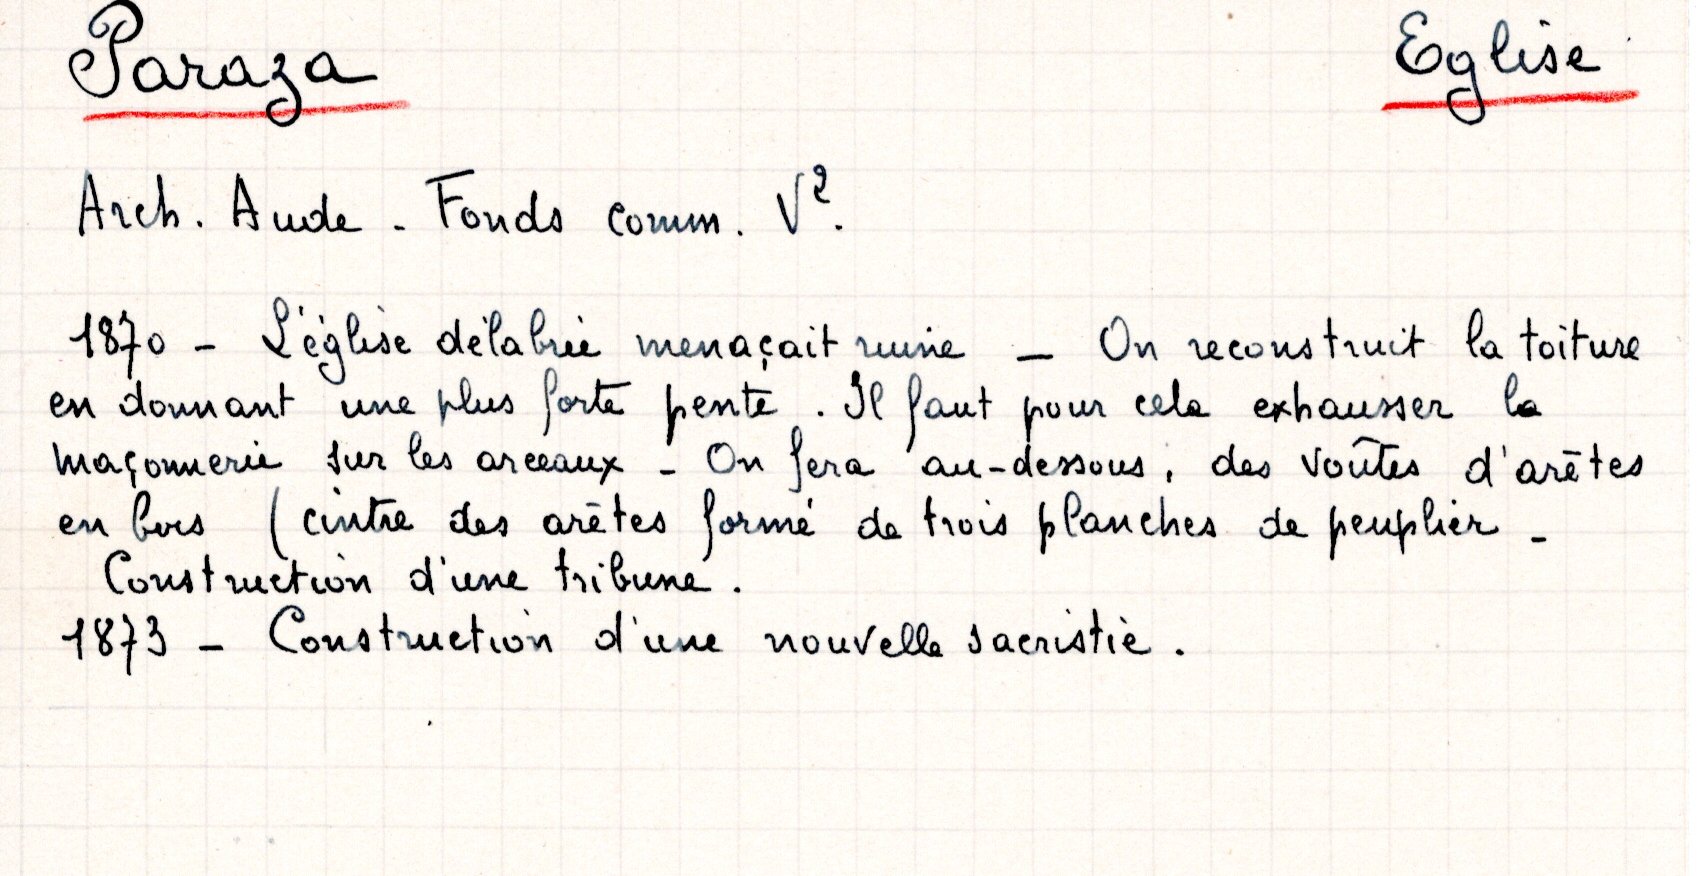 Paraza Eglise
Arch. Aude - Fonds comm. V².
1870 - L'église délabrée menaçait ruine - On reconstruit la toiture
en donnant une plus forte pente. Il faut pour cela exhausser la
maçonnerie sur les arceaux - On fera au-dessous, des voûtes d'arêtes
en bois (cintre des arêtes formé de trois planches de peuplier -
Construction d'une tribune.
1873 - Construction d'une nouvelle sacristie.